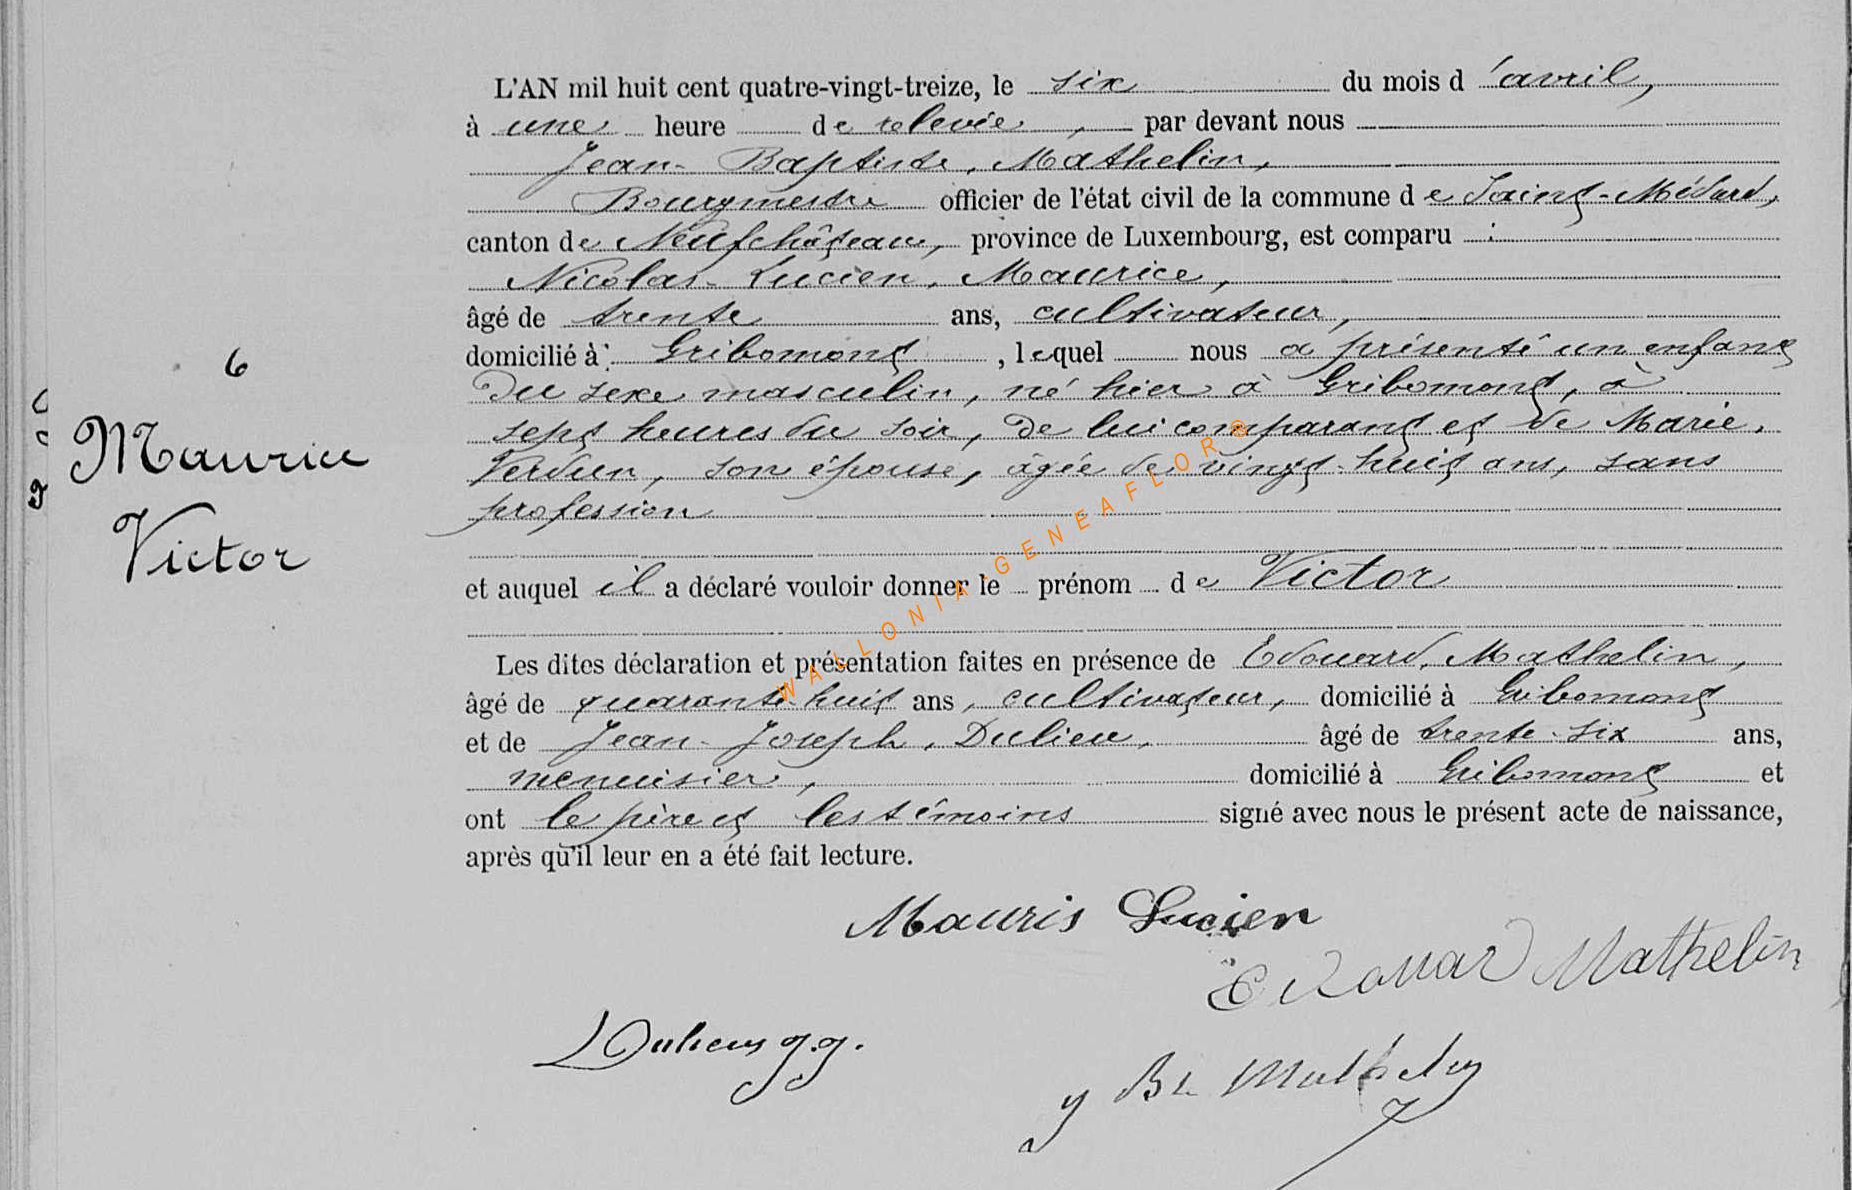 L'AN mil huit cent quatre-vingt-treize, le six du mois d'avril,
à une heure de relevée, par devant nous
Jean-Baptiste, Mathelin,
Bourgmestre officier de l'état civil de la commune de Saint-Médard,
canton de Neufchâteau, province de Luxembourg, est comparu :
Nicolas-Lucien, Maurice,
âgé de trente ans, cultivateur,
domicilié à Gribomont, lequel nous a présenté un enfant
du sexe masculin, né hier à Gribomont, à
sept heures du soir, de lui comparant et de Marie,
Verdun, son épouse, âgée de vingt-huit ans, sans
profession
et auquel il a déclaré vouloir donner le prénom de Victor
Les dites déclaration et présentation faites en présence de Edouard, Mathelin,
âgé de quarante-huit ans, cultivateur, domicilié à Gribomont
et de Jean-Joseph, Dulieu, âgé de trente-six ans,
menuisier, domicilié à Gribomont et
ont le père et les témoins signé avec nous le présent acte de naissance,
après qu'il leur en a été fait lecture.
6
Maurice
Victor
Mauris Lucien
Edouard Mathelin
Dulieux J.J.
J Bte Mathelin
WALLONIA-GENEAFLOR8